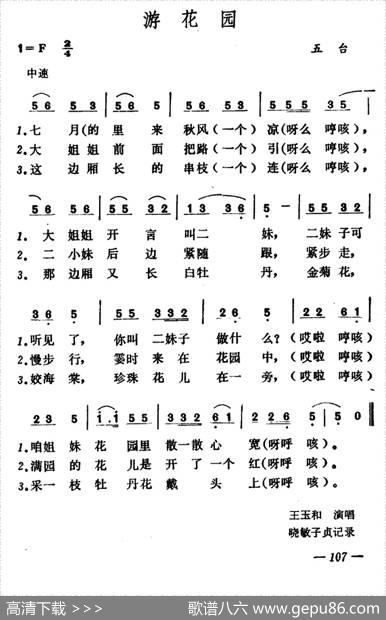 游花园
1=F 2/4 五台
中速
56 53 | 56 5 | 53 55 | 55 35 |
1.七月(的里来秋风(一个)凉(呀么哼咳),
2.大姐姐前面把路(一个)引(呀么哼咳),
3.这边厢长的串枝(一个)连(呀么哼咳),
56 56 | 55 32 | 13 36 | 5 - | 55 35 |
1.大姐姐开言叫二妹,二妹子可
2.二小妹后边紧随跟,紧步走,
3.那边厢又长白牡丹,金菊花,
36 5 | 55 332 | 126 5 | 22 61 |
1.听见了,你叫二妹子做什么?(哎啦哼咳)
2.慢步行,霎时来在花园中,(哎啦哼咳)
3.姣海棠,珍珠花儿在一旁,(哎啦哼咳)
23 5 | i·i 55 | 332 61 | 226 5 | 5 0 ‖
1.咱姐妹花园里散一散心宽(呀呼咳)。
2.满园的花儿是开了一个红(呀呼咳)。
3.采一枝牡丹花戴头上(呀呼咳)。
王玉和 演唱
晓敏子贞记录
— 107 —
高清下载 >>> 歌谱八六 www.gepu86.com